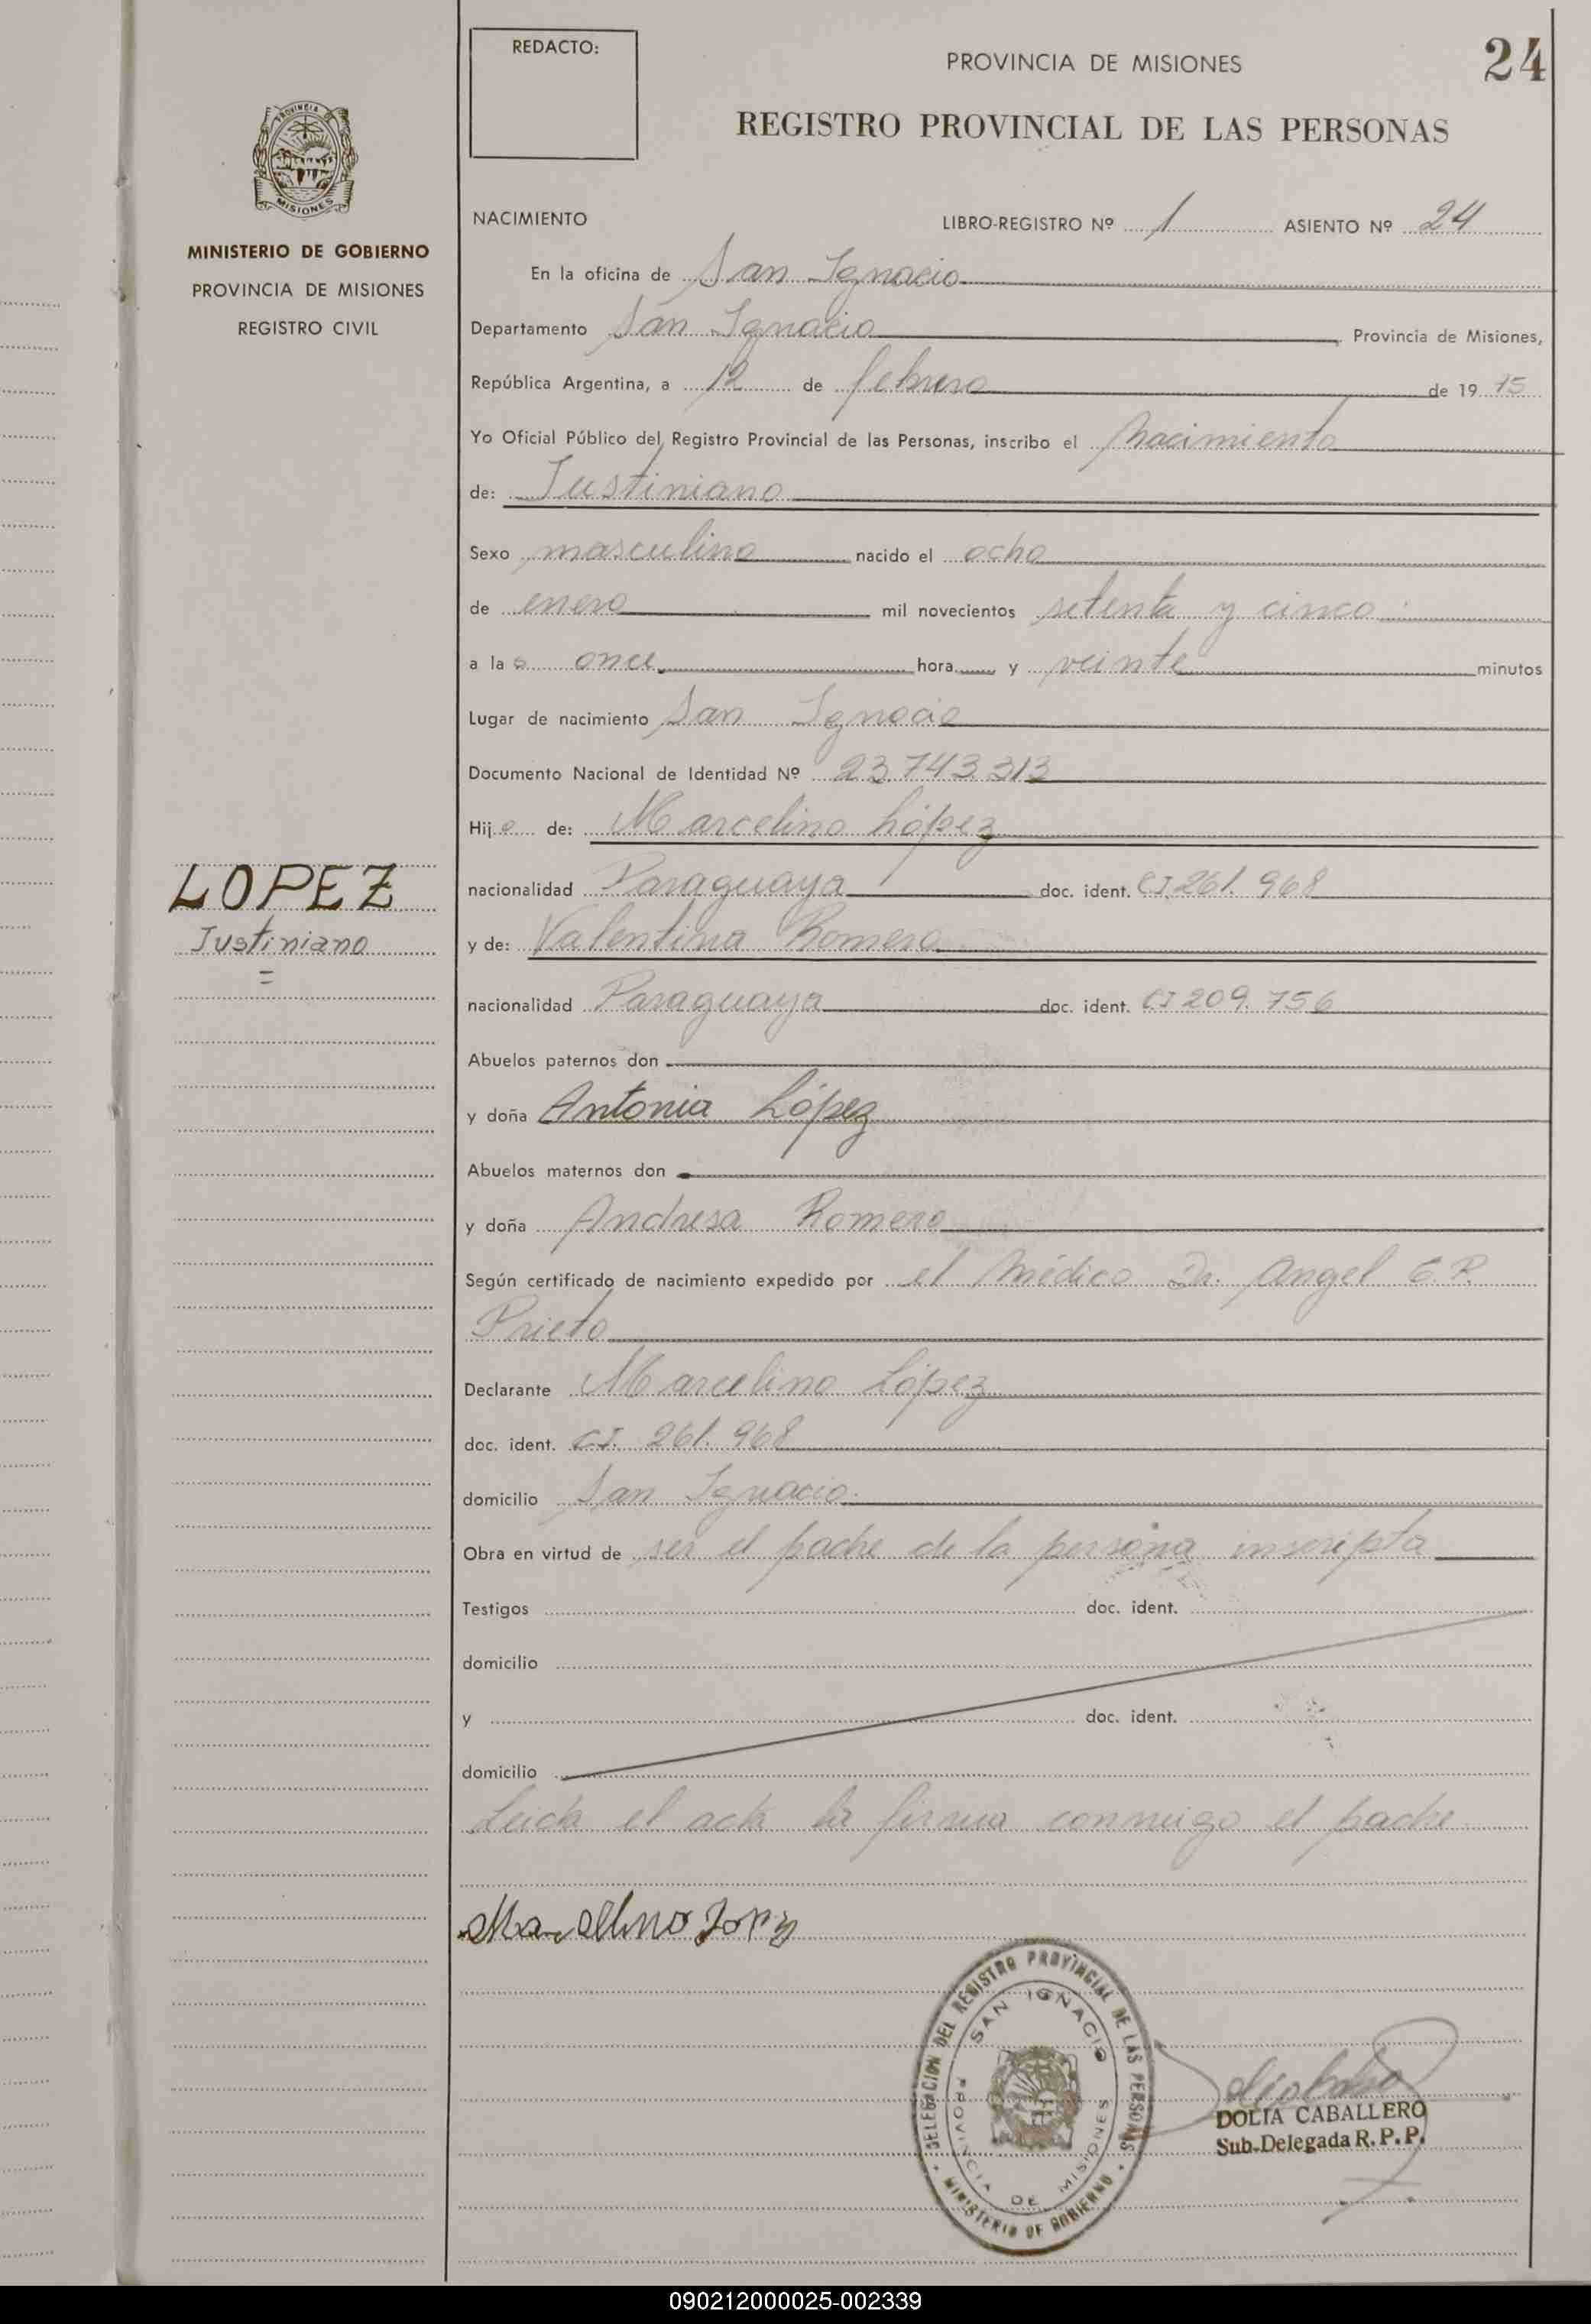 REDACTO:
PROVINCIA DE MISIONES
24
REGISTRO PROVINCIAL DE LAS PERSONAS
PROVINCIA DE
MISIONES
MINISTERIO DE GOBIERNO
PROVINCIA DE MISIONES
REGISTRO CIVIL
NACIMIENTO
LIBRO-REGISTRO Nº 1 ASIENTO Nº 24
En la oficina de San Ignacio
Departamento San Ignacio Provincia de Misiones,
República Argentina, a 12 de febrero de 19 75
Yo Oficial Público del Registro Provincial de las Personas, inscribo el Nacimiento
de: Justiniano
Sexo masculino nacido el ocho
de enero mil novecientos setenta y cinco
a la s once hora y veinte minutos
Lugar de nacimiento San Ignacio
Documento Nacional de Identidad Nº 23.743.313
Hij o de: Marcelino López
LOPEZ
Justiniano
nacionalidad Paraguaya doc. ident. CI.261.968
y de: Valentina Romero
nacionalidad Paraguaya doc. ident. CI 209.756
Abuelos paternos don
y doña Antonia López
Abuelos maternos don
y doña Andresa Romero
Según certificado de nacimiento expedido por el Médico Dr. Angel E.P.
Prieto
Declarante Marcelino López
doc. ident. CI. 261.968
domicilio San Ignacio.
Obra en virtud de ser el padre de la persona inscripta
Testigos doc. ident.
domicilio
y doc. ident.
domicilio
Leida el acta la firma conmigo el padre
Marcelino Lopez
DELEGACION DEL REGISTRO PROVINCIAL DE LAS PERSONAS
SAN IGNACIO
PROVINCIA DE MISIONES
MINISTERIO DE GOBIERNO
DOLIA CABALLERO
Sub-Delegada R. P. P.
090212000025-002339